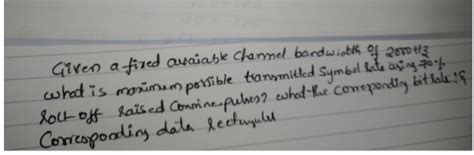 Given a fixed avaiable channel bandwidth of 2000Hz
what is maximum possible transmitted Symbol Rate using 70%
Roll off Raised Cosine pulses? what the corresponding bit Rate!?
Corresponding data